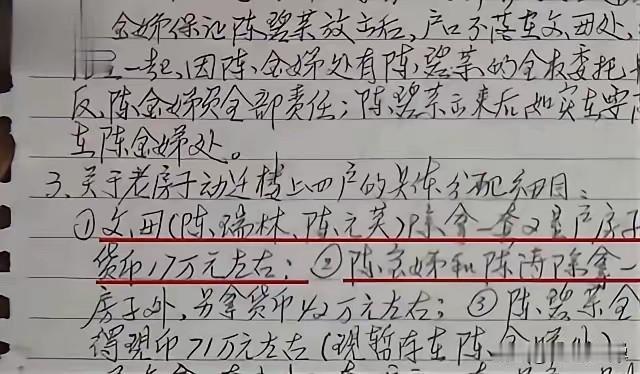 金娣保证陈碧菜放出后,户口不落在文、毌处,
一起,因陈金娣处有陈碧菜的全权委托
反,陈金娣负全部责任;陈碧菜出来后如实在要
在陈金娣处。
3.关于老房子动迁楼上四户的具体分配细目:
①文、毌(陈瑞林、陈元英)除拿一套产房子
货币17万元左右;②陈金娣和陈涛除拿一
房子处,另拿货币42万元左右;③陈碧菜全
得现币71万元左右(现暂存在陈金娣处)